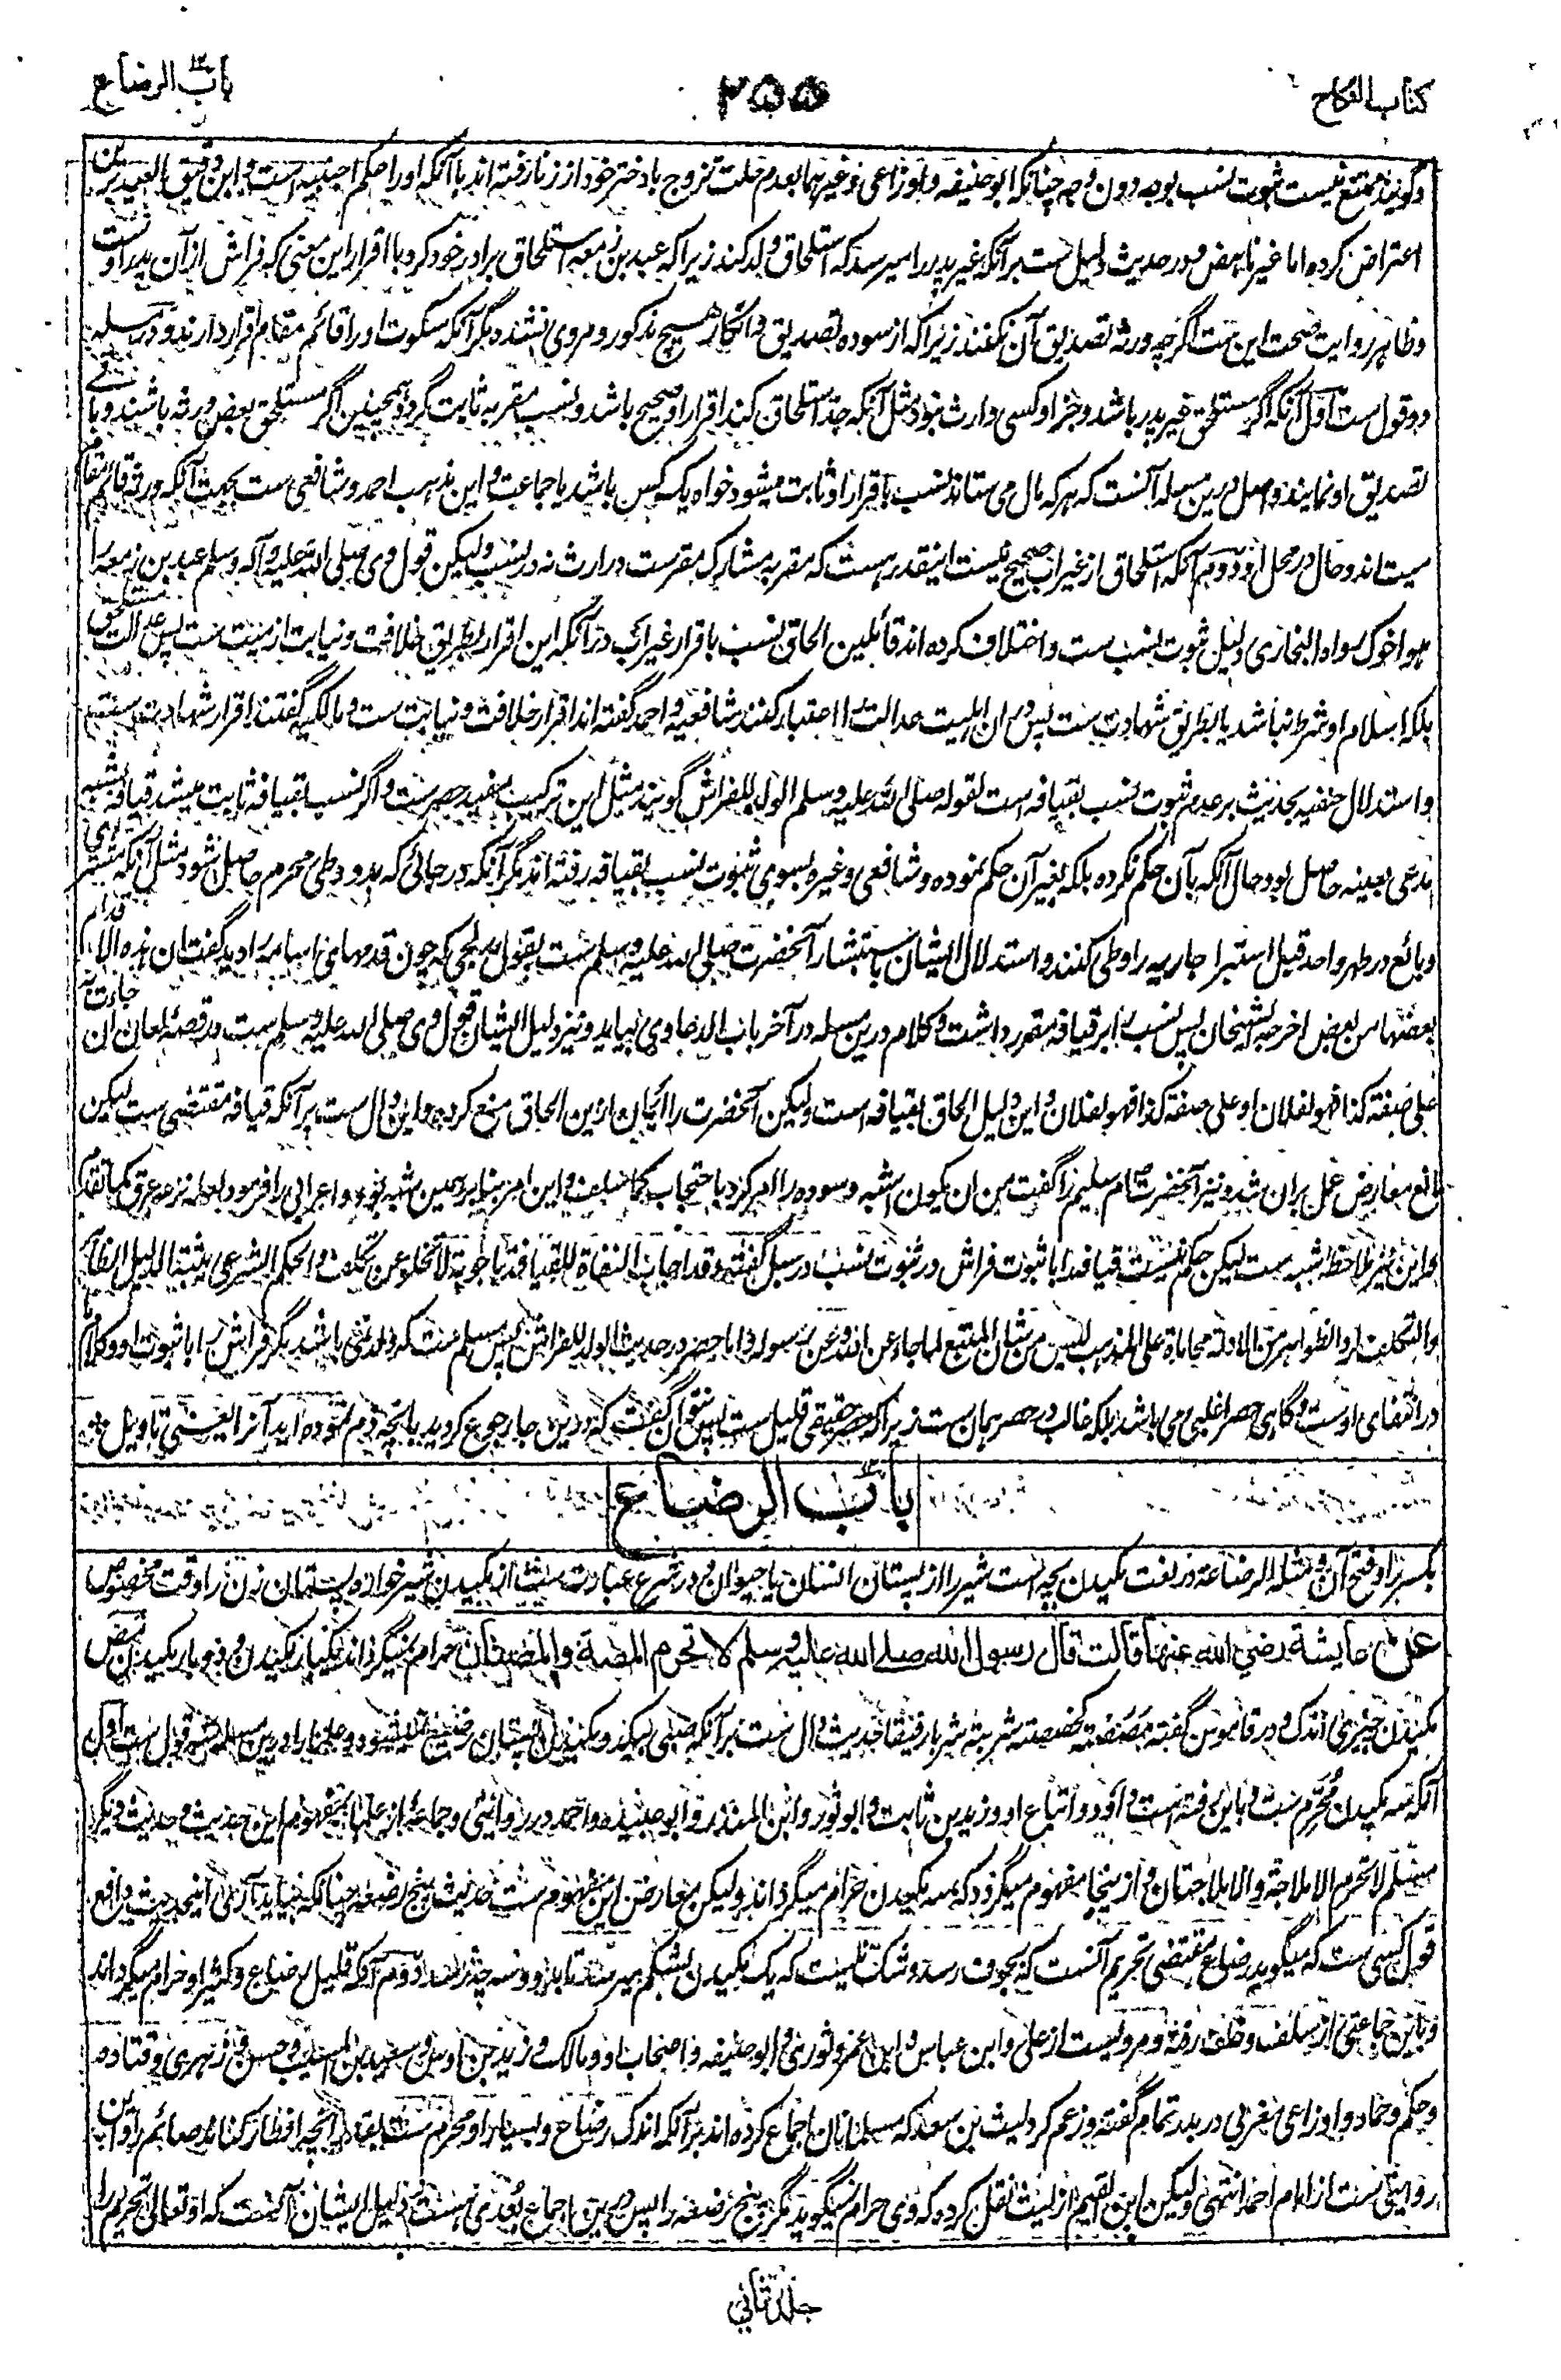 کتاب النکاح
۲۵۵
باب الرضاع
وگویند ممتنع نیست ثبوت نسب بوجه دون وجه چنانکه ابوحنیفه واوزاعی وغیرهما بعدم حلت تزوج با دختر خود از زنا رفته اند با آنکه او را حکم اجنبیه است وابن دقیق العید برین
اعتراض کرده اما غیر ناهض ودر حدیث دلیل ست بر آنکه غیر پدر را میرسد که استلحاق ولد کند زیرا که عبد بن زمعه استلحاق برادر خود کرد با اقرار این معنی که فراش از آن پدر اوست
وظاهر روایت صحت این ست اگرچه ورثه تصدیق آن نکنند زیرا که از سوده تصدیق وانکار هیچ مذکور ومروی نشده مگر آنکه سکوت او را قائم مقام اقرار دارند ودر مسئله
دو قول ست اول آنکه اگر مستلحق غیر پدر باشد وجز او کسی وارث نبود مثل آنکه جد استلحاق کند اقرار او صحیح باشد ونسب مقر به ثابت گردد وهمچنین اگر مستلحق بعض ورثه باشند وباقی
تصدیق او نمایند واصل درین مسئله آنست که هر که مال می ستاند نسب باقرار او ثابت میشود خواه یک کس باشد یا جماعت واین مذهب احمد وشافعی ست بجهت آنکه ورثه قائم مقام
میت اند وحال در محل او ودوم آنکه استلحاق از غیر اب صحیح نیست اینقدر هست که مقر به مشارک مقرست در ارث نه در نسب ولیکن قول وی صلی الله علیه وآله وسلم عبد بن زمعه را
هو اخوک رواه البخاری دلیل ثبوت نسب ست واختلاف کرده اند قائلین الحاق نسب باقرار غیر اب در آنکه این اقرار بطریق خلافت ونیابت از میت ست پس عدالت مستلحق
بلکه اسلام او شرط نباشد یا بطریق شهادت ست پس در ان اهلیت عدالت را اعتبار کنند شافعیه واحمد گفته اند اقرار خلافت ونیابت ست ومالکیه گفتند اقرار شهادت ست
واستدلال حنفیه بحدیث بر عدم ثبوت نسب بقیافه است لقوله صلی الله علیه وسلم الولد للفراش گویند مثل این ترکیب مفید حصرست واگر نسب بقیافه ثابت میشد قیافه شبیه
مدعی بعینه حاصل بود وحال آنکه بآن حکم نکرده بلکه بغیر آن حکم نموده وشافعی وغیره بسوی ثبوت نسب بقیافه رفته اند مگر آنکه در جائی که بدو وطی محرم حاصل شود مثل آنکه مشتری
وبائع در طهر واحد قبل استبرا جاریه را وطی کنند واستدلال ایشان باستبشار آنحضرت صلی الله علیه وسلم ست بقول مدلجی که چون قدمهای اسامه را دید گفت ان هذه الاقدام
بعضها من بعض اخرجه الشیخان پس نسب را بر قیافه مقرر داشت وکلام درین مسئله در آخر باب الدعاوی بیاید ونیز دلیل ایشان قول وی صلی الله علیه وسلم ست در قصه لعان ان جاءت به
علی صفة کذا فهو لفلان او علی صفة کذا فهو لفلان واین دلیل الحاق بقیافه است ولیکن آنحضرت را ایمان ازین الحاق منع کرده واین دال ست بر آنکه قیافه مقتضی ست لیکن
مانع معارض عمل بران شد ونیز آنحضرت ام سلیم را گفت من این یکون الشبه وسوده را امر کرد باحتجاب کما سلف واین امر بنا بر همین شبه بود واعرابی را فرمود لعله نزعه عرق کما تقدم
واین نیز ملاحظه شبه ست لیکن حکم نیست قیافه را با ثبوت فراش در ثبوت نسب در سبل گفته وقد اجاب النفاة للقیافة باجوبة لا تخلو عن تکلف والحکم الشرعی یثبته الدلیل الظاهر
والتکلف لرد الظواهر من الادلة محاماة علی المذهب لیس من شان المتبع لما جاء عن الله وعن رسوله واما حصر در حدیث الولد للفراش پس مسلم ست که ولد نمی باشد مگر فراش را با ثبوت او وکلام ما
در انتفای اوست وگاهی حصر اغلبی می باشد بلکه غالب در حصر همان ست زیرا که حصر حقیقی قلیل ست پس نتوان گفت که درین جا رجوع کردید بآنچه ذم نموده اید آنرا یعنی تاویل
باب الرضاع
بکسر را وفتح آن ومثله الرضاعة در لغت مکیدن بچه است شیر را از پستان انسان یا حیوان ودر شرع عبارت ست از مکیدن شیرخواره پستان زن را وقت مخصوص
عن عایشة رضی الله عنها قالت قال رسول الله صلی الله علیه وسلم لا تحرم المصة والمصتان حرام نمیگرداند یکبار مکیدن ودو بار مکیدن مص
مکیدن چیزی اندک ودر قاموس گفته مصصته کخصصته شربته شربا رفیقا حدیث دال ست بر آنکه صبی بمکیدن پستان رضیع نمیشود وعلما را درین مسئله سه قول ست اول
آنکه سه مکیدن محرم ست وباین رفته است داود واتباع او وزید بن ثابت وابو ثور وابن المنذر وابو عبیده واحمد در روایتی وجماعه از علما بمفهوم این حدیث وحدیث دیگر
مسلم لا تحرم الاملاجة والاملاجتان وازینجا مفهوم میگردد که سه مکیدن حرام میگرداند ولیکن معارض این مفهوم ست حدیث پنج رضعه چنانکه بیاید آری اینحدیث دافع
قول کسی ست که میگوید رضاع مقتضی تحریم آنست که بجوف رسد وشک نیست که یک مکیدن بشکم میرسد تا بدو وسه چه رسد دوم آنکه قلیل رضاع وکثیر او حرام میگرداند
وباین جماعتی از سلف وخلف رفته ومرویست از علی وابن عباس وابن عمر وثوری وابو حنیفه واصحاب او ومالک وزید بن اوس وسعید بن المسیب وحسن وزهری وقتاده
وحکم وحماد واوزاعی مغربی در بدر تمام گفته وزعم کرد لیث بن سعد که مسلمانان اجماع کرده اند بر آنکه اندک رضاع وبسیار او محرم ست بقدر آنچه افطار کناند صائم را واین
روایتی ست از امام احمد انتهی ولیکن ابن القیم از لیث نقل کرده که وی حرام نمیگوید مگر پنج رضعه را پس درین اجماع بعدی هست ودلیل ایشان آنست که او تعالی تحریم را
جلد ثانی